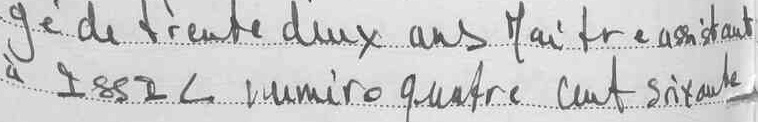 gé de trente deux ans Maitre assistant
à ISSIL numéro quatre cent soixante